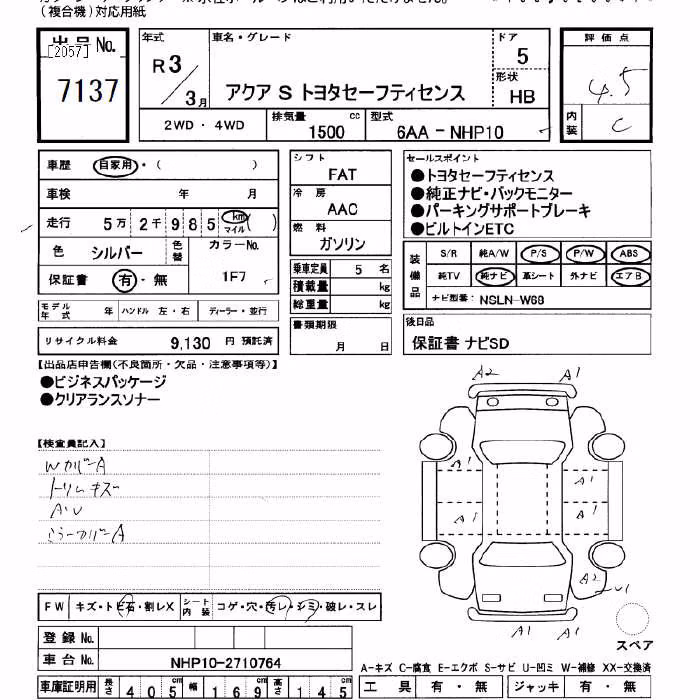 (複合機)対応用紙
出品No.
[2057]
7137
年式
R3/3月
車名・グレード
アクア S トヨタセーフティセンス
ドア
5
形状
HB
評価点
4.5
内装
C
2WD・4WD
排気量
1500 cc
型式
6AA-NHP10
車歴 自家用・( )
車検 年 月
走行 5万2千985 km マイル ( )
色 シルバー
色替
カラーNo.
1F7
保証書 有・無
モデル年式 年 ハンドル 左・右 ディーラー・並行
リサイクル料金 9,130 円 預託済
シフト
FAT
冷房
AAC
燃料
ガソリン
乗車定員 5 名
積載量 kg
総重量 kg
書類期限
月 日
セールスポイント
●トヨタセーフティセンス
●純正ナビ・バックモニター
●パーキングサポートブレーキ
●ビルトインETC
装備品
S/R 純A/W P/S P/W ABS
純TV 純ナビ 革シート 外ナビ エアB
ナビ型番: NSLN-W68
後日品
保証書 ナビSD
【出品店申告欄(不良箇所・欠品・注意事項等)】
●ビジネスパッケージ
●クリアランスソナー
【検査員記入】
WカバーA
トリムキズ
AU
ミラーカバーA
A2 A1
A1 A1
A1 A1
A2
A1 A1
スペア
FW キズ・トビ石・割レX
シート内装 コゲ・穴・汚レ・シミ・破レ・スレ
登録No.
車台No. NHP10-2710764
車庫証明用 長さ 405cm 幅 169cm 高さ 145cm
A-キズ C-腐食 E-エクボ S-サビ U-凹ミ W-補修 XX-交換済
工具 有・無 ジャッキ 有・無